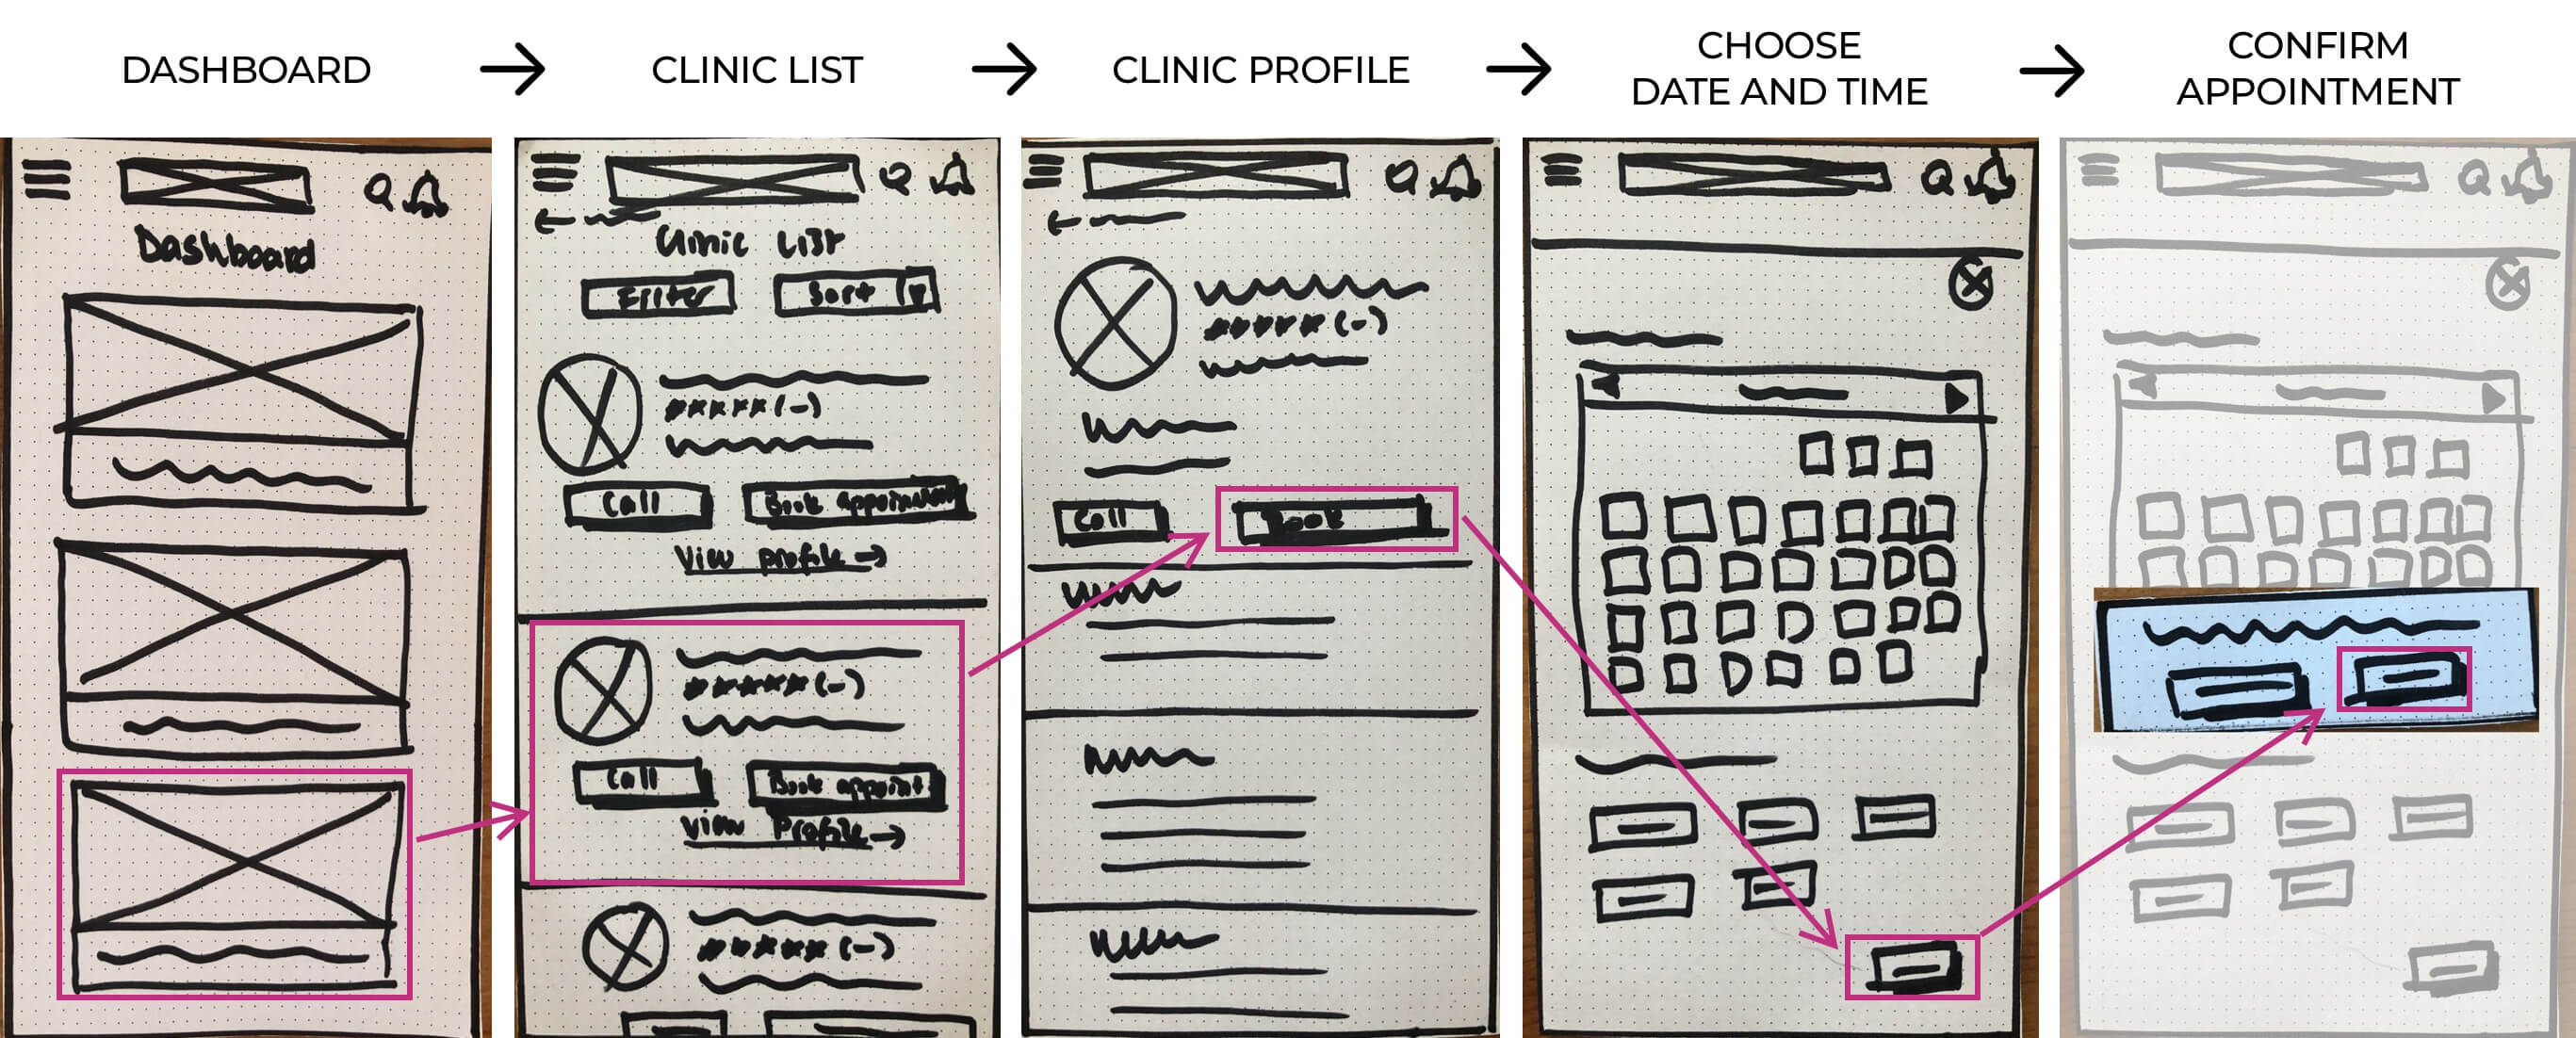 DASHBOARD → CLINIC LIST → CLINIC PROFILE → CHOOSE DATE AND TIME → CONFIRM APPOINTMENT
Dashboard
Clinic List
Filter Sort
Call Book appointment
View profile →
Call Book appoint
View Profile →
Call Book